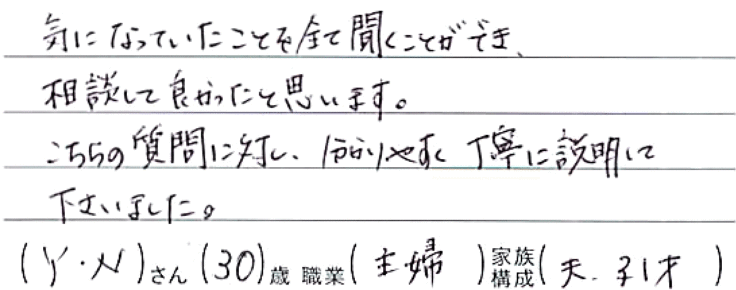 気になっていたことを全て聞くことができ、
相談して良かったと思います。
こちらの質問に対し、分かりやすく丁寧に説明して
下さいました。
(Y・N)さん(30)歳 職業(主婦)家族構成(夫、子1才)